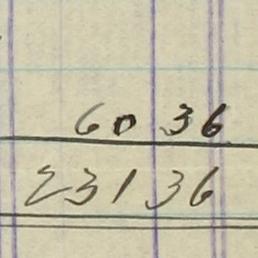 60 36
231 36